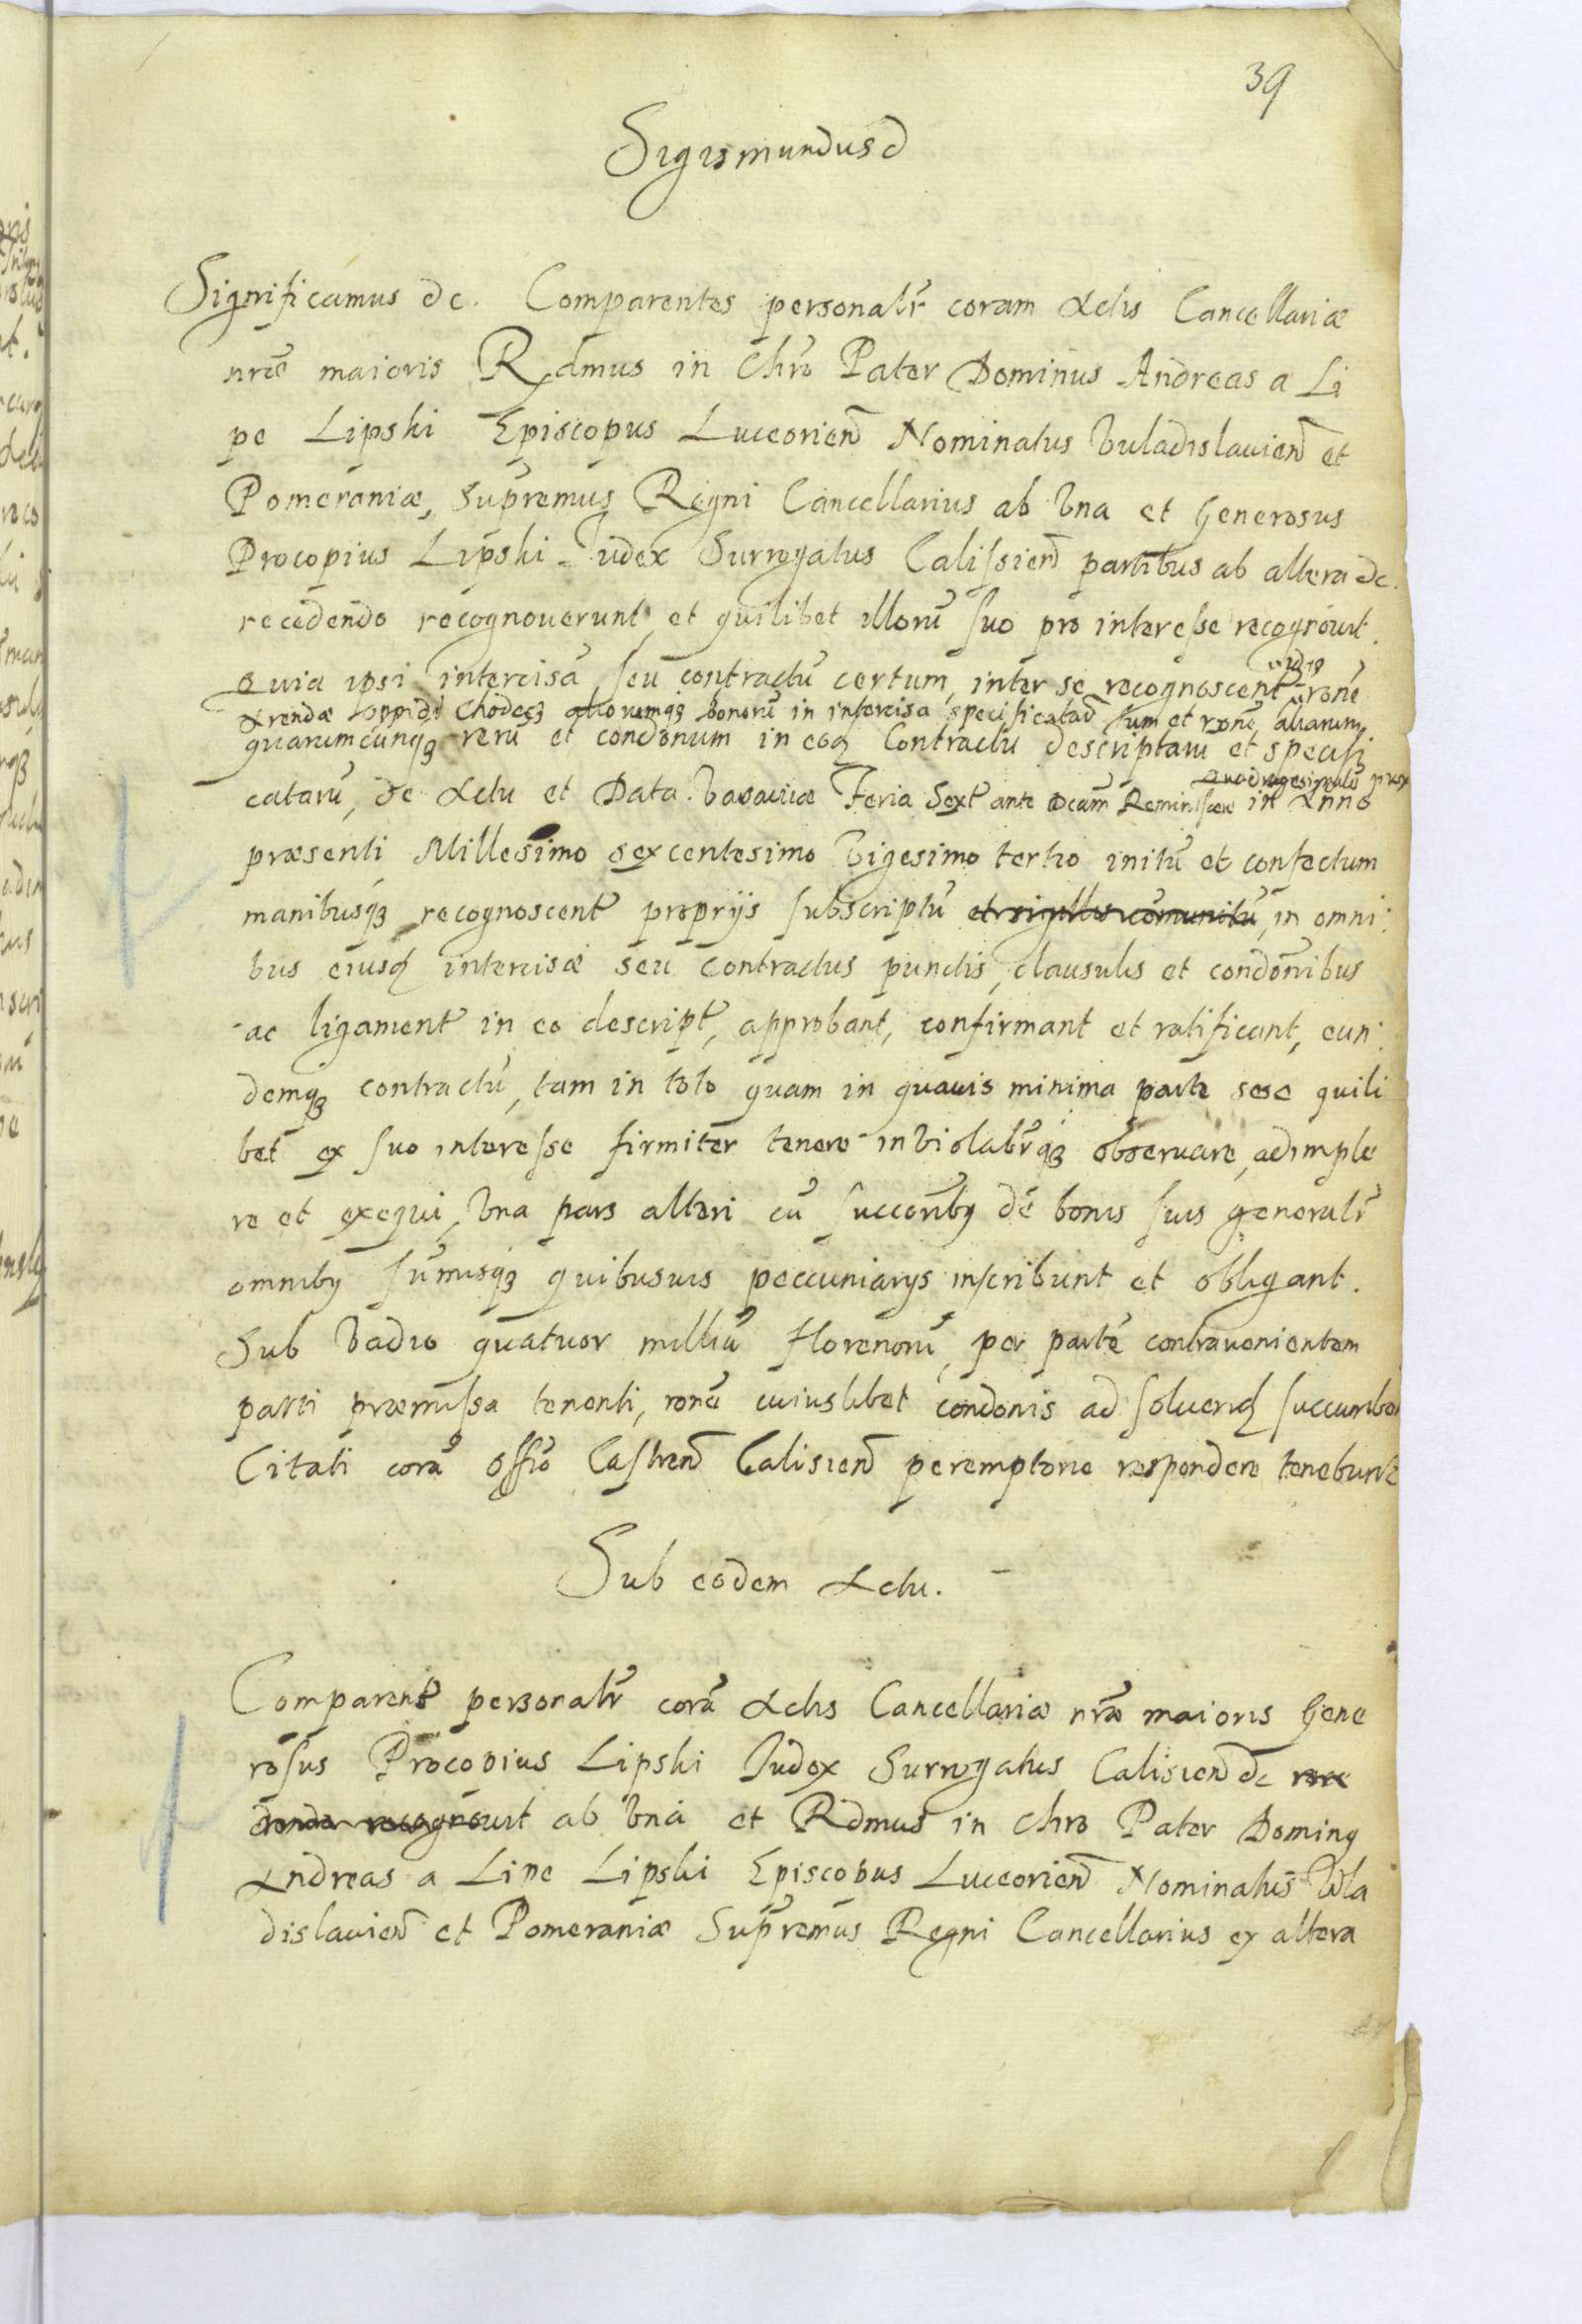 39
Sigismundus &
Significamus &c. Comparentes personalr̃ coram Actis Cancellariæ
nr̃æ maioris Rx̃dmus in Chrõ Pater Dominus Andreas a Li
pe Lipski Episcopus Luceorien̄ Nominatus Vuladislauien̄ et
Pomeraniæ, Supremus Regni Cancellarius ab Vna et Generosus
Procopius Lipski Iudex Surrogatus Calissien̄ partibus ab altera &c.
recedendo recognouerunt, et quilibet illorū suo pro interesse recognouit.
Quia ipsi intercisā, seu contractū certum, inter se recognoscent̃ rōne
Arendæ oppidi Chodecz bonorū in intercisa specificatar̄ tum et rōne aliarum
quarumcunqȝ rerū et condonum in eoq̄ Contractu descriptaru et specifi
catarū, de Actu et Data Varsauiæ Feria Sext̃ ante Dcam Reminiscere in Anno
præsenti Millesimo sexcentesimo Vigesimo tertio initū et confectum
manibusqȝ recognoscent̃ proprijs subscriptū et sigillis cōmunitū, in omni:
bus eiusq̄ intercisæ seu Contractus punctis, clausulis et condōnibus
ac ligament̃ in eo descript̃, approbant, confirmant et ratificant, eun:
demqȝ contractū, tam in toto quam in quauis minima parte sese quili
bet ex suo interesse firmiter tenere inViolabr̃qȝ obseruare, adimple
re et exequi, Vna pars alteri cū succorib9 dē bonis suis generalr̃
omnib9 sūmisqȝ quibusuis peccuniarijs inscribunt et obligant.
Sub Vadio quatuor milliū florenorū, per partē contrauenientem
parti præmissa tenenti, rōne cuiuslibet condonis ad soluend̄ succumben
Citati corā Offiō Castren̄ Calisien̄ peremptorie respondere tenebunt̃
Sub eodem Actu.
Comparent̃ personalr̃ corā Actis Cancellariæ nr̃æ maioris Gene
rosus Procopius Lipski Iudex Surrogatus Calisien̄ &c rece
dendo recognouit ab Vna et Rdmus in Chro Pater Domin9
Andreas a Lipe Lipski Episcopus Luceorien̄ Nominatus Wla
dislauien̄ et Pomeraniæ Supremus Regni Cancellarius ex altera